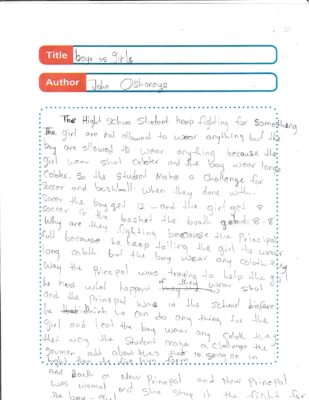 Title boys vs girls
Author John Oshoneye
The Hight schoo student keep fighting for something
the girl are not allowed to wear anything but the
boy are allowed to wear anything because the
girl wear shot coloter and the boy wear long
coloter. So the student make a challenge for
soccer and bashball. When they done with
soccer the boy get 12 and the girl get 8
soccer in the basket the both get 8-8
Why are they fighting because the Principal
Roll because he keep telling the girl to wear
long coloth but the boy wear any coloth
Way the Prinepal was traying to help the girl
he tried what happent if they wear shot
and the Prinopal was in the school before
he think he can do any thing for the
girl and leat the boy wear any coloth
that way the student make a challenge the
add about this is going on in
and a New Prinopal and New Prinopal
was woman and she stop it the fight for
the boy - girl